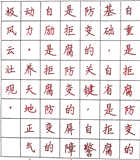 自重是拒腐防变的
基础,自省是拒腐
防变的关键,自警
是拒腐防变的屏障
自励是拒腐防变的
动力,养天地正气
极风云壮观